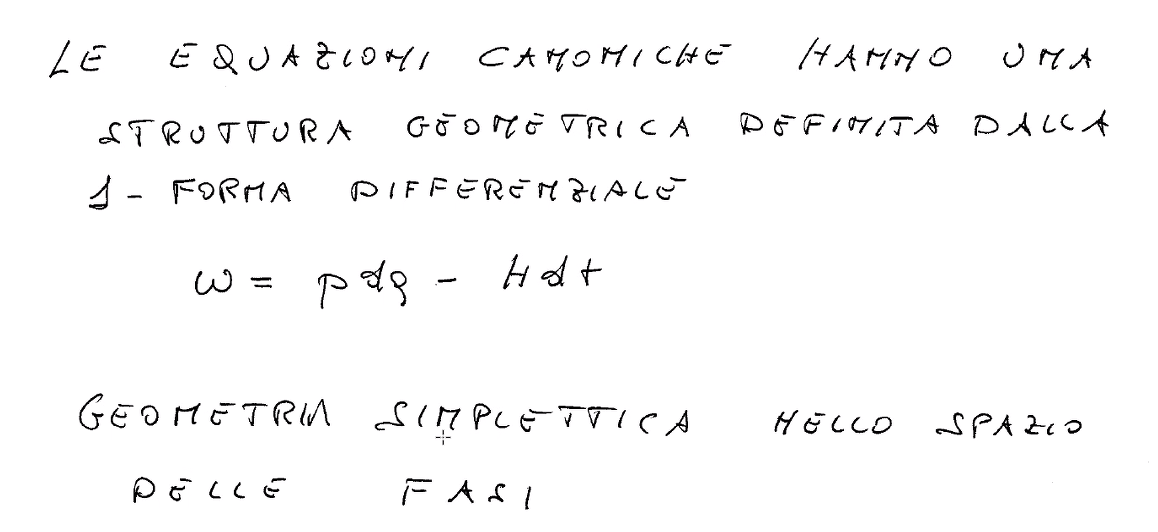 LE EQUAZIONI CANONICHE HANNO UNA
STRUTTURA GEOMETRICA DEFINITA DALLA
1 - FORMA DIFFERENZIALE
ω = pdq - Hdt
GEOMETRIA SIMPLETTICA NELLO SPAZIO
DELLE FASI